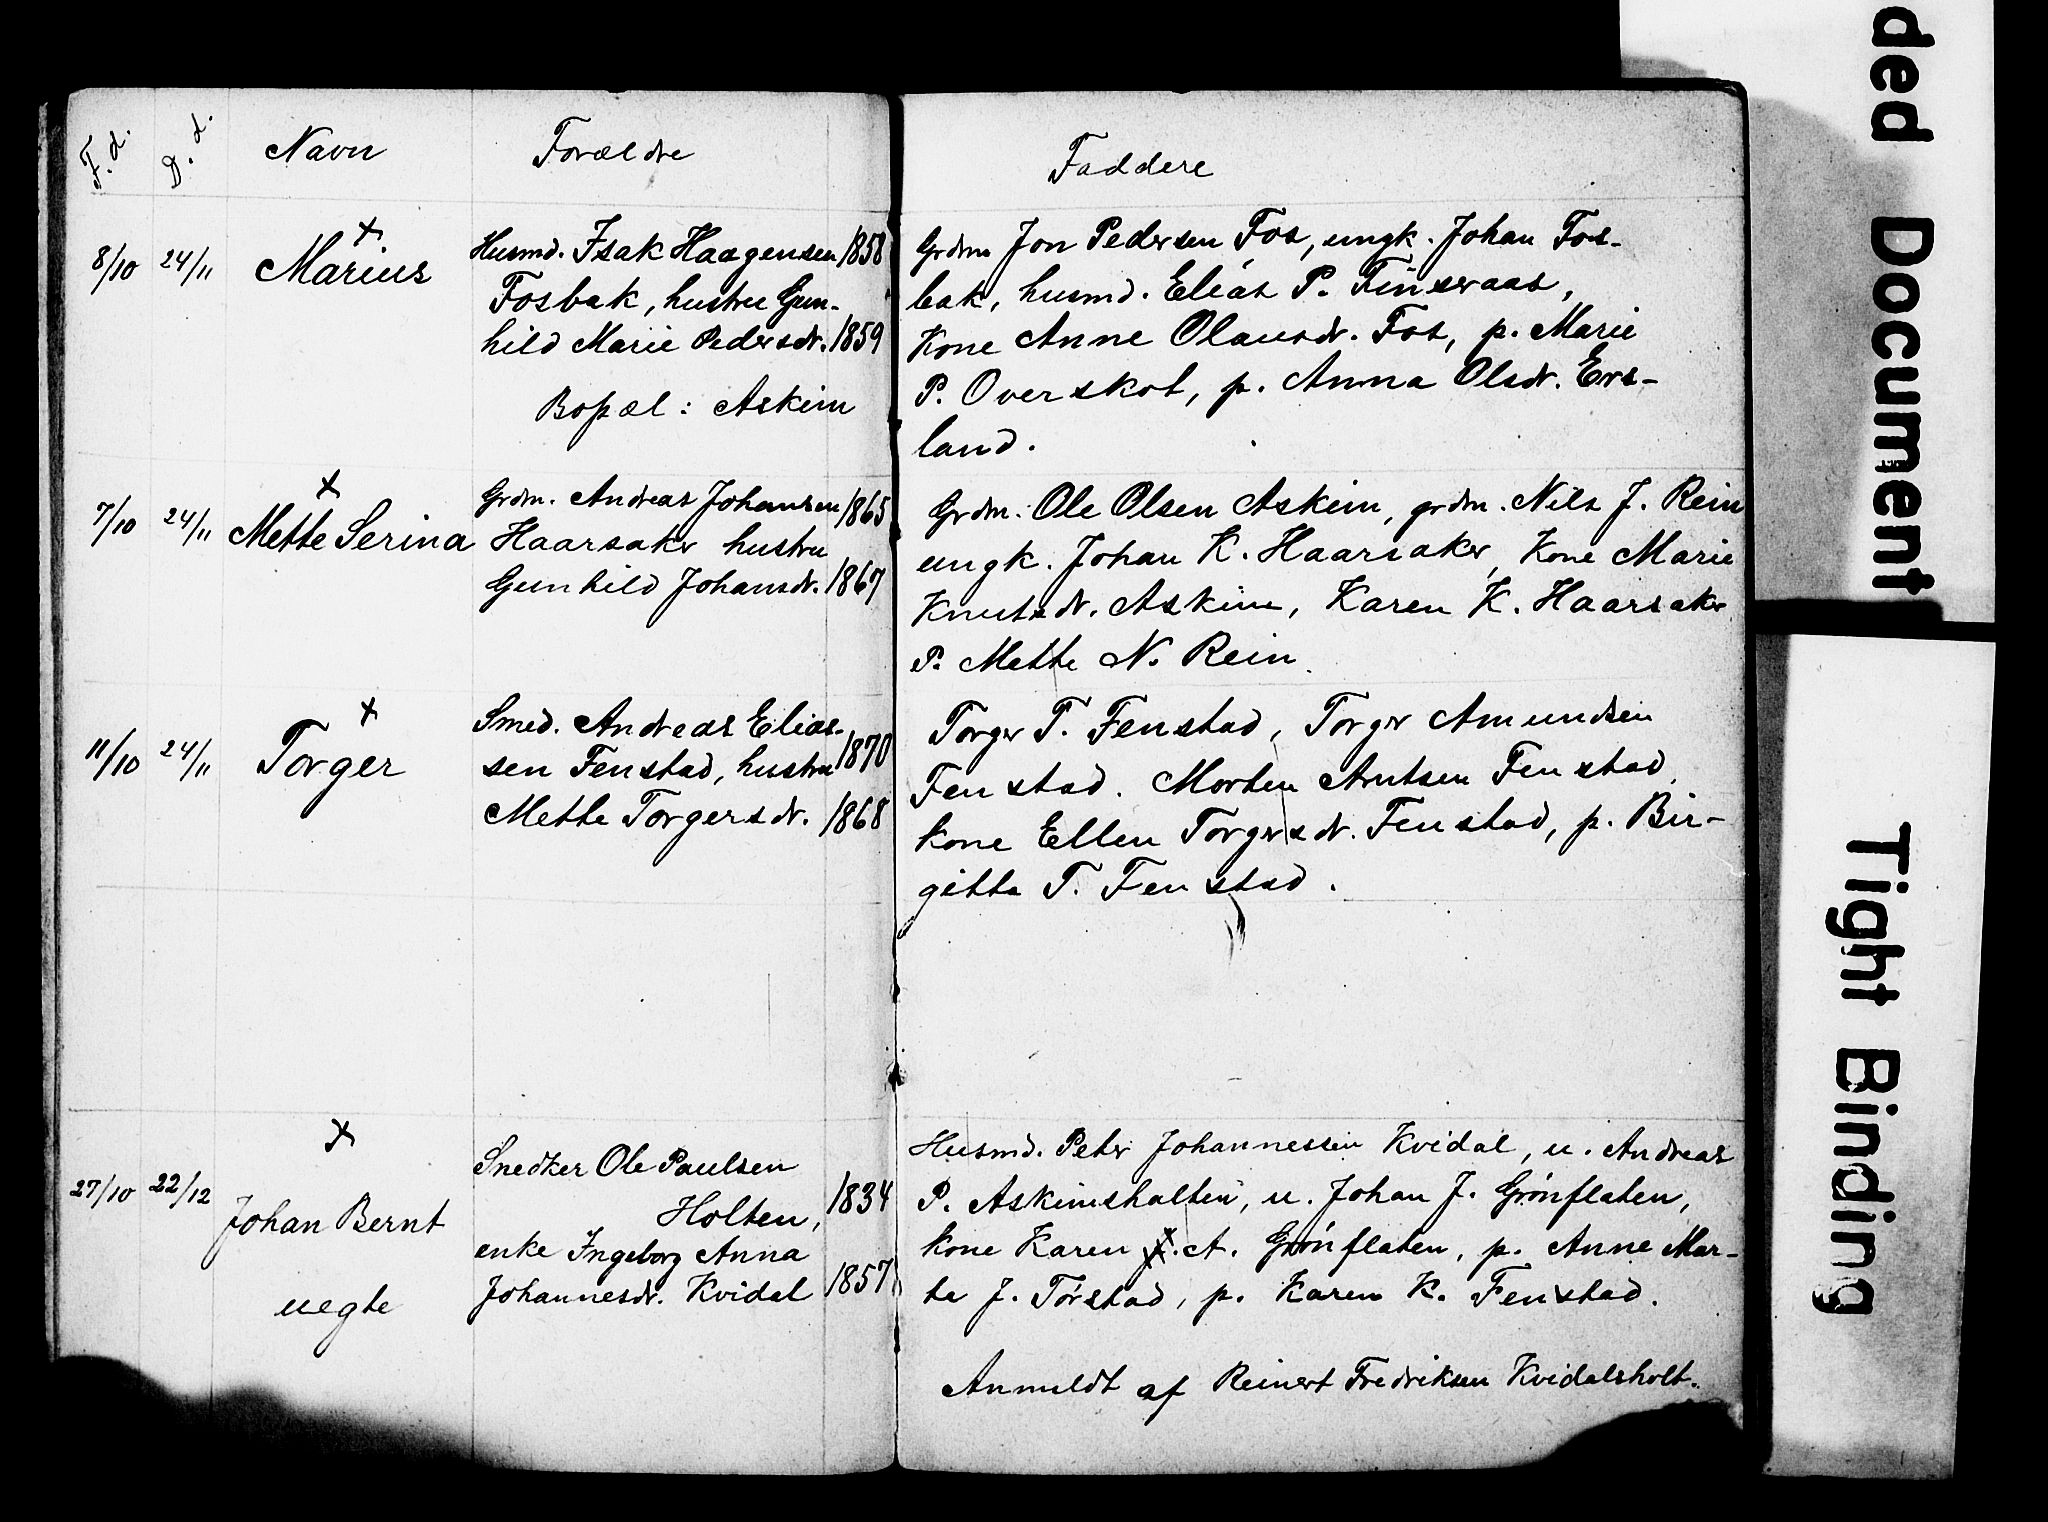 F. d. D. d. Navn Forældre Faddere
8/10 24/11 Marius
Husmd. Isak Haagensen 1858
Fosbak, hustru Gun-
hild Marie Pedersdr. 1859
Bopæl: Askim
Grdm Jon Pedersen Fos, ungk. Johan Fos-
bak, husmd. Elias P. Finseraas,
Kone Anne Olausdr. Fos, p. Marie
P. Overskot, p. Anna Olsdr. Ers-
land.
7/10 24/11 Mette Serina
Grdm. Andreas Johansen 1865
Haarsaker hustru
Gunhild Johansdr. 1867
Grdm. Ole Olsen Askim, grdm. Nils J. Rein
ungk. Johan K. Haarsaker, Kone Marie
Knutsdr. Askim, Karen K. Haarsaker
P. Mette N. Rein.
11/10 24/11 Torger
Smed. Andreas Elias-
sen Fenstad, hustru 1870
Mette Torgersdr. 1868
Torger T. Fenstad, Torger Amundsen
Fenstad. Morten Arntsen Fenstad,
kone Ellen Torgersdr. Fenstad, p. Bir-
gitta T. Fenstad.
27/10 22/12
Johan Bernt
uegte
Snedker Ole Paulsen
Holten, 1834
enke Ingeborg Anna
Johannesdr. Kvidal 1857
Husmd. Peter Johannessen Kvidal, u. Andreas
P. Askimshalten, u. Johan J. Grönflaten,
kone Karen A. Grönflaten, p. Anne Mar-
ta J. Törstad, p. Karen K. Fenstad.
Anmeldt af Reinert Fredriksen Kvidalsholt.
ded Document
Tight Binding